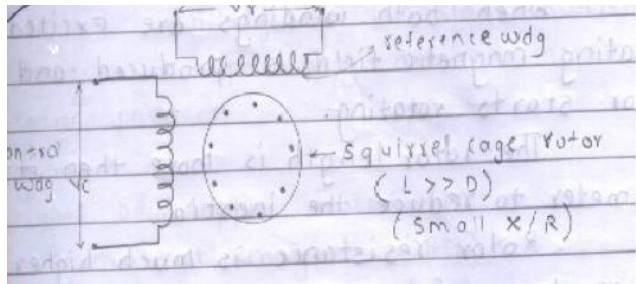 Vr
reference wdg
control
wdg Vc
squirrel cage rotor
(L >> D)
(small X/R)